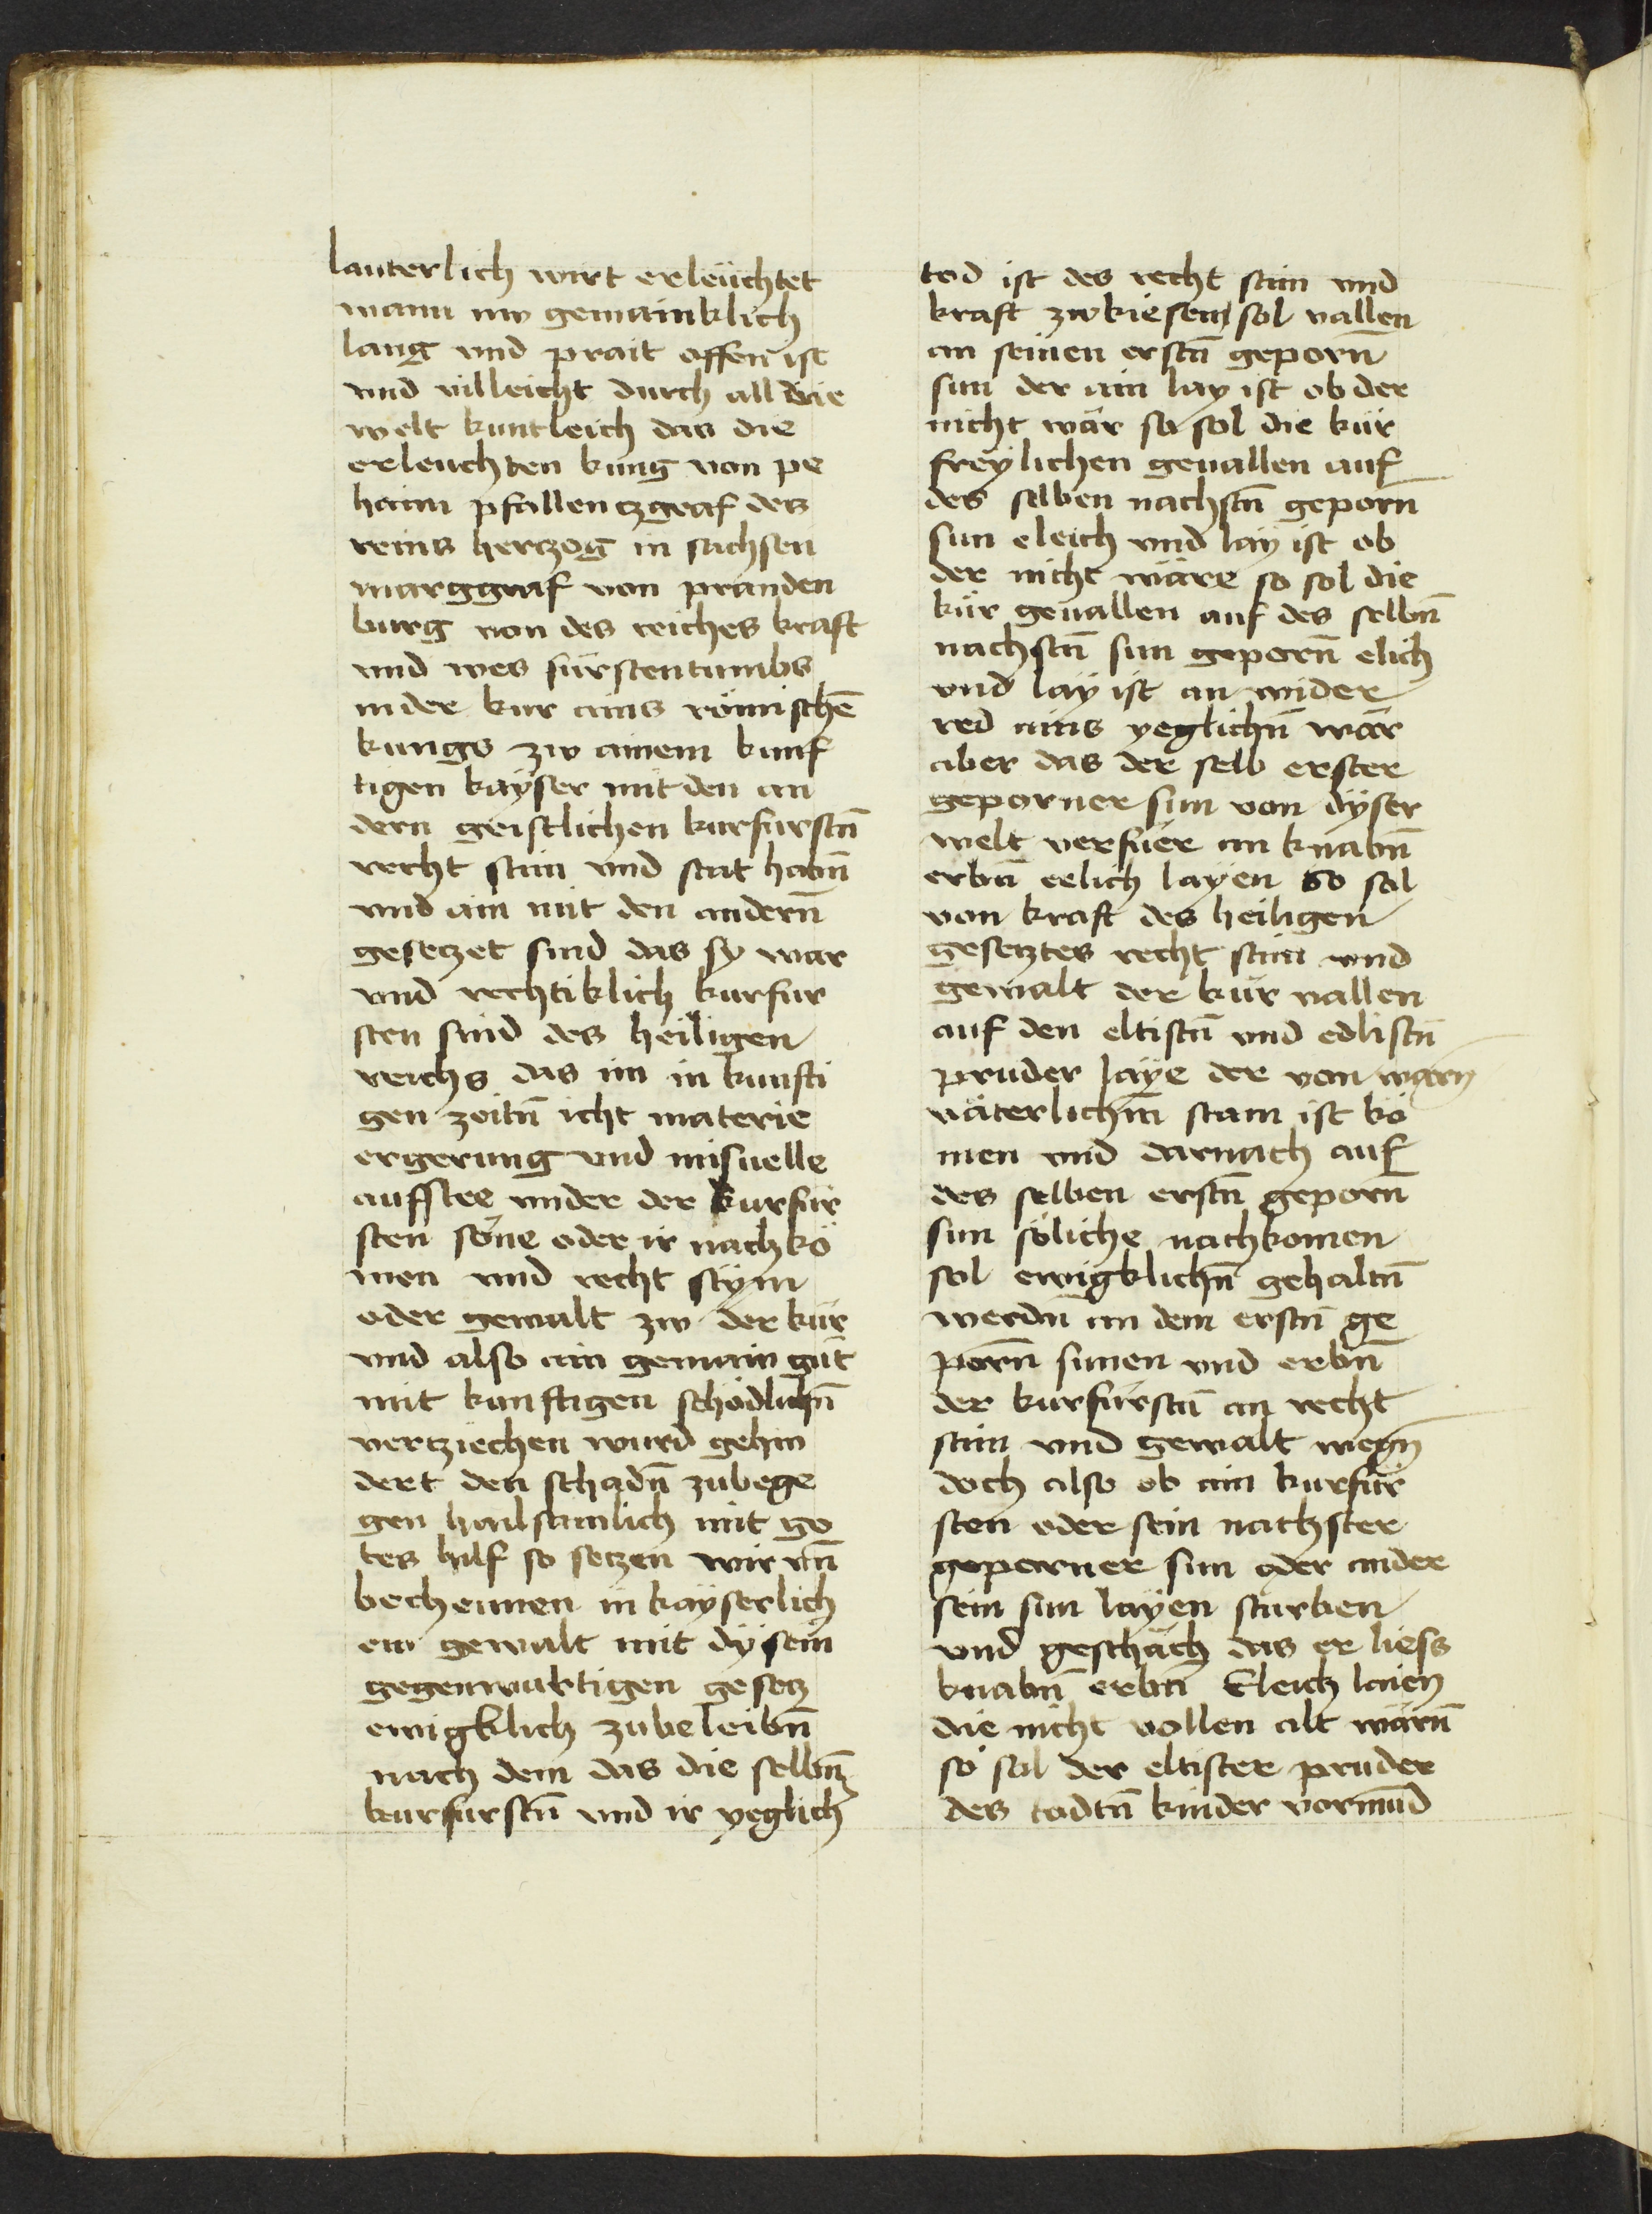 lauterlich wirt erleüchtet
wann nw gemainklich
lang vnd prait offen ist
vnd villeicht durch all die
welt kuntleich das die
erleuchten kung von pe
haim pfallenczgraf des
reins herczog in sachsen
marggraf von pranden
burg von des reiches kraft
vnd wes fürstentumbs
in der kur ains römischē
kungs zw ainem kunf
tigen kayser mit den an
dern geistlichen kurfurstn̄
recht stim vnd stat habn̄
vnd ain mit den andern̄
gesetzet sind das sy war
vnd rechtiklich kurfur
sten sind des heiligen
reichs das im in kunfti
gen zeitn̄ icht materie
ergerung vnd misuelle
aufstee vnder der kurfür
sten söne oder ir nachkö
men vnd recht stym
oder gewalt zw der kür
vnd also ain gemain gůt
mit kunftigen schödlichn̄
vertziechen wurd gehin
dert den schadn̄ zubege
gen hailsamlich mit go
tes hilf so setzen wir vn̄
bechennen in kayserlich
em gewalt mit dysem
gegenwurtigen gesetz
ewigklich zubeleibn̄
nach dem das die selbn̄
kurfurstn̄ vnd ir yeglich
tod ist des recht stim vnd
kraft zwkiesen sol vallen
an seinen erstn̄ geporn̄
sun der ain lay ist ob der
nicht wär so sol die kür
freylichen geuallen auf
des selben nachstn̄ geporn
sun eleich vnd lay ist ob
der nicht wäre so sol die
kür geuallen auf des selbn̄
nachstn̄ sun geporn̄ elich
vnd lay ist an wider
red ains yeglichn̄ wär
aber das der selb erster
geporner sun von dyser
welt verfüer an knabn̄
erbn̄ eelich layen so sol
von kraft des heiligen
gesetztes recht stim vnd
gewalt der kür vallen
auf den eltistn̄ vnd edlistn̄
pruder laye der von warn
väterlichm̄ stam ist kö
men vnd darnach auf
des selben erstn̄ geporn̄
sun söliche nachkomen
sol ewigklichn̄ gehaltn̄
werdn̄ an dem erstn̄ ge
porn̄ sunen vnd erbn̄
der kurfürstn̄ an recht
stim vnd gewalt wegn
doch also ob ain kurfür
sten oder sein nachster
geporner sun oder ander
sein sun layen sturben
vnd geschäch das er liess
knabn̄ erbn̄ Eleich laien
die nicht vollen alt wärn̄
so sol der eltister pruder
des todtn̄ kinder vormūd